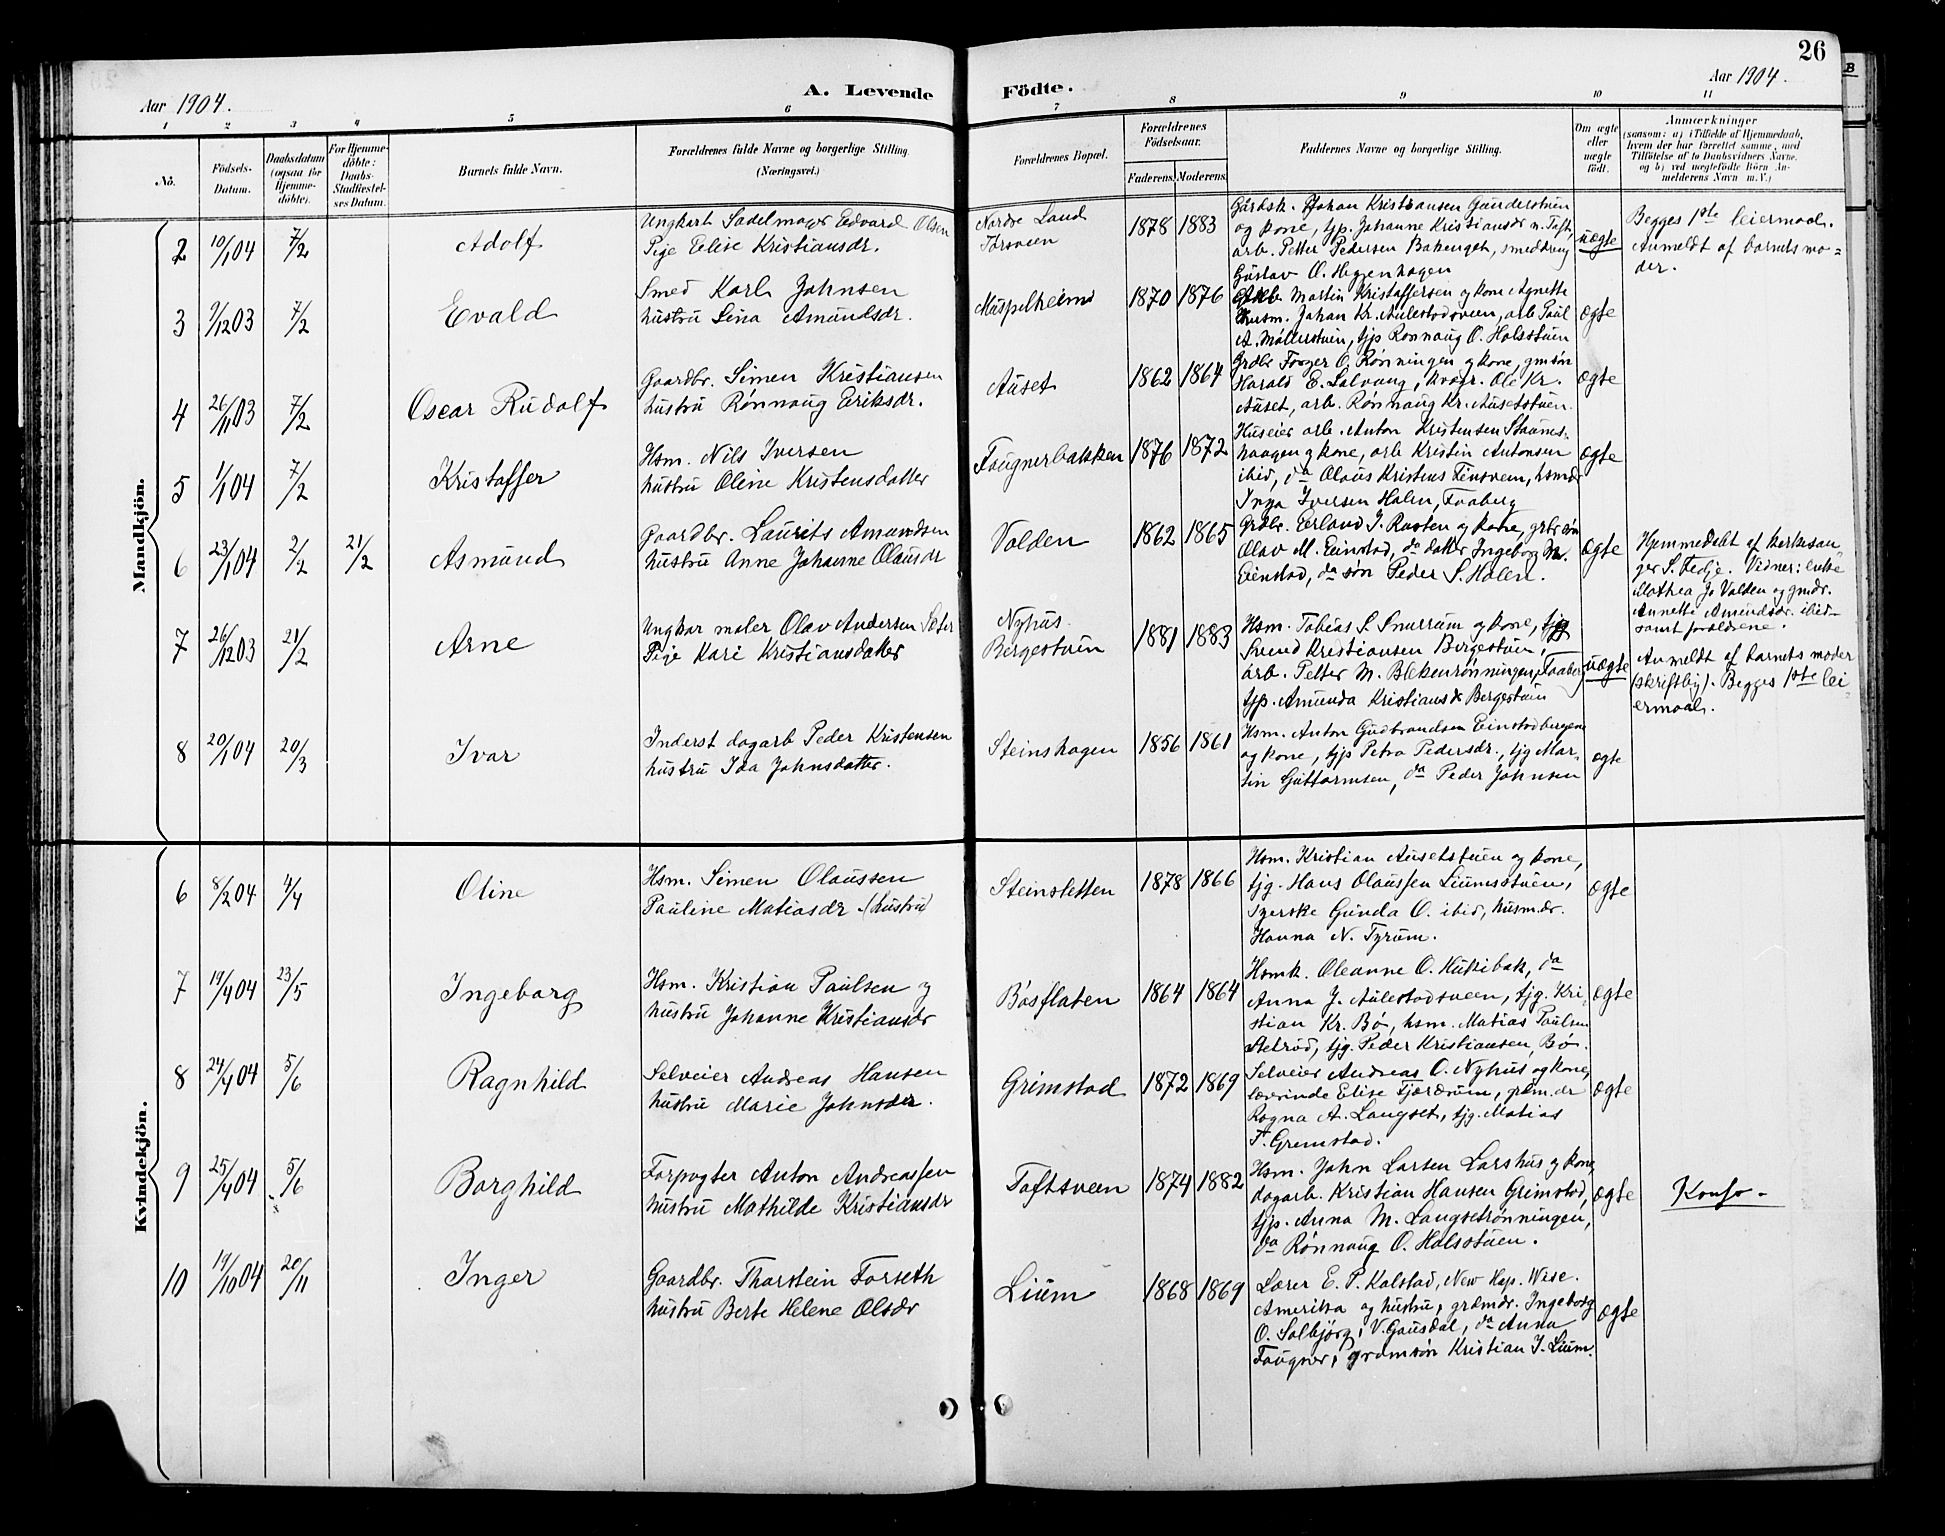 26
Aar 1904.
A. Levende
Födte.
Aar 1904.
1 2 3 4 5 6 7 8 9 10 11
No.
Födsels-
Datum.
Daabsdatum
(ogsaa for
Hjemme-
döbte).
For Hjemme-
döbte:
Daabs-
Stadfæstel-
ses Datum.
Barnets fulde Navn.
Forældrenes fulde Navne og borgerlige Stilling
(Næringsvei.)
Forældrenes Bopæl.
Forældrenes
Födselsaar.
Faderens. Moderens.
Faddernes Navne og borgerlige Stilling.
Om ægte
eller
uægte
födt.
Anmærkninger
(saasom: a) i Tilfælde af Hjemmedaab,
hvem der har forrettet samme, med
Tilföielse af to Daabsvidners Navne,
og b) ved uægtefödte Börn An-
melderens Navn m.V.)
Mandkjön.
2 10/1 04 7/2 Adolf
Ungkarl Sadelmager Edvard Olsen
Pige Elise Kristiansdr.
Nordre Land
1878 1883
Gårdsk. Johan Kristiansen Gunderstuen
og kone, tjp. Johanne Kristiansdr n. Toft,
arb. Petter Pedersen Bakenget, smeddreng
Gustav O. Heggenhagen
uægte
Begges 1ste leiermaal.
Anmeldt af barnets mo-
der.
3 9/12 03 7/2 Evald
Smed Karl Johnsen
hustru Lina Amundsdr.
Muspelheim
1870 1876
Martin Kristoffersen og kone Agnette
husm. Johan Kr. Aulestadsveen, arb Paul
A. Møllerstuen, tjp Rønnaug O. Holsstuen
ægte
4 26/11 03 7/2 Oscar Rudolf
Gaardbr. Simen Kristiansen
hustru Rønnaug Eriksdr.
Auset
1862 1864
Grdbr O. Rønningen og kone, gmsøn
Harald E. Solvang, Ole Kr.
Auset, arb. Rønnaug Kr. Ausetstuen.
ægte
5 1/1 04 7/2 Kristoffer
Hsm. Nils Iversen
hustru Oline Kristensdatter
Fougnerbakken
1876 1872
Huseier arb. Anton Kristensen Staums-
haagen og kone, arb Kristin Antonsen
ibid, da Olaus Kristens
Inga Iversen Holen, Faaberg
ægte
6 23/1 04 2/2 21/2 Asmund
Gaardbr. Laurits Amundsen
hustru Anne Johanne Olausdr
Volden
1862 1865
Grdbr. Erland J. Rusten og kone, grbr søn
Olav M. Einstad, da datter Ingeborg M.
Einstad, da søn Peder S. Holen.
ægte
Hjemmedøbt af kirkesan
ger S. Fedje. Vidner: enke
Mathea Jo Volden og gmdr.
Annette Amundsdr. ibid
samt forældrene.
7 26/12 03 21/2 Arne
Ungkar maler Olav Andersen Sæter
Pige Kari Kristiansdatter
Nyhus
Bergestuen
1881 1883
Hsm. Tobias S. Snurrum og kone, tjg
Svend Kristiansen Bergestuen,
arb. Petter M. Blekenrønningen, Faaberg
tjp. Amunda Kristiansdr Bergestuen
uægte
Anmeldt af barnets moder
(skriftlig). Begges 1ste lei
ermaal.
8 20/1 04 20/3 Ivar
Inderst dagarb Peder Kristensen
hustru Ida Johnsdatter.
Steinshagen
1856 1861
Hsm. Anton Gudbrandsen Einstadbergene
og kone, tjp Petra Pedersdr., tjg Mar-
tin Guttormsen, da Peder Johnsen
ægte
Kvindekjön.
6 8/2 04 4/4 Oline
Hsm. Simen Olaussen
Pauline Matiasdr (hustru)
Steinsletten
1878 1866
Hsm. Kristian Ausetstuen og kone,
tjg. Hans Olaussen Liumsstuen,
syerske Gunda O. ibid, husm.dr.
Hanna N. Tyrum.
ægte
7 19/4 04 23/5 Ingeborg
Hsm. Kristian Paulsen og
hustru Johanne Kristiansdr
Bøsflaten
1864 1864
Hsmk. Oleanne O. Kukibak, da
Anna J. Aulestadsveen, tjg. Kri-
stian Kr. Bø, hsm. Matias Paulsen
Stelrud, tjg. Peder Kristiansen, Bø.
ægte
8 24/4 04 5/6 Ragnhild
Selveier Andreas Hansen
hustru Marie Johnsdr.
Grimstad
1872 1869
Selveier Andreas O. Nyhus og kone,
lærerinde Elise Fjærdrum, grdm.dr
Ragna A. Langset, tjg. Matias
T. Gremstad.
ægte
9 25/4 04 5/6 Borghild
Forpagter Anton Andreassen
hustru Mathilde Kristiansdr
Toftsveen
1874 1882
Hsm. John Larsen Larshus og kone
dagarb. Kristian Hansen Grimstad,
tjp. Anna M. Langsetrønningen,
da Rønnaug O. Holsstuen.
ægte
10 19/10 04 20/11 Inger
Gaardbr. Thorstein Forseth
hustru Berte Helene Olsdr
Lium
1868 1869
Lærer E. P. Kalstad, New Hop. Wise.
Amerika og hustru, grdmdr. Ingeborg
O. Solbjørg, V. Gausdal, da Anna
Fougner, grdmsøn Kristian J. Lium.
ægte